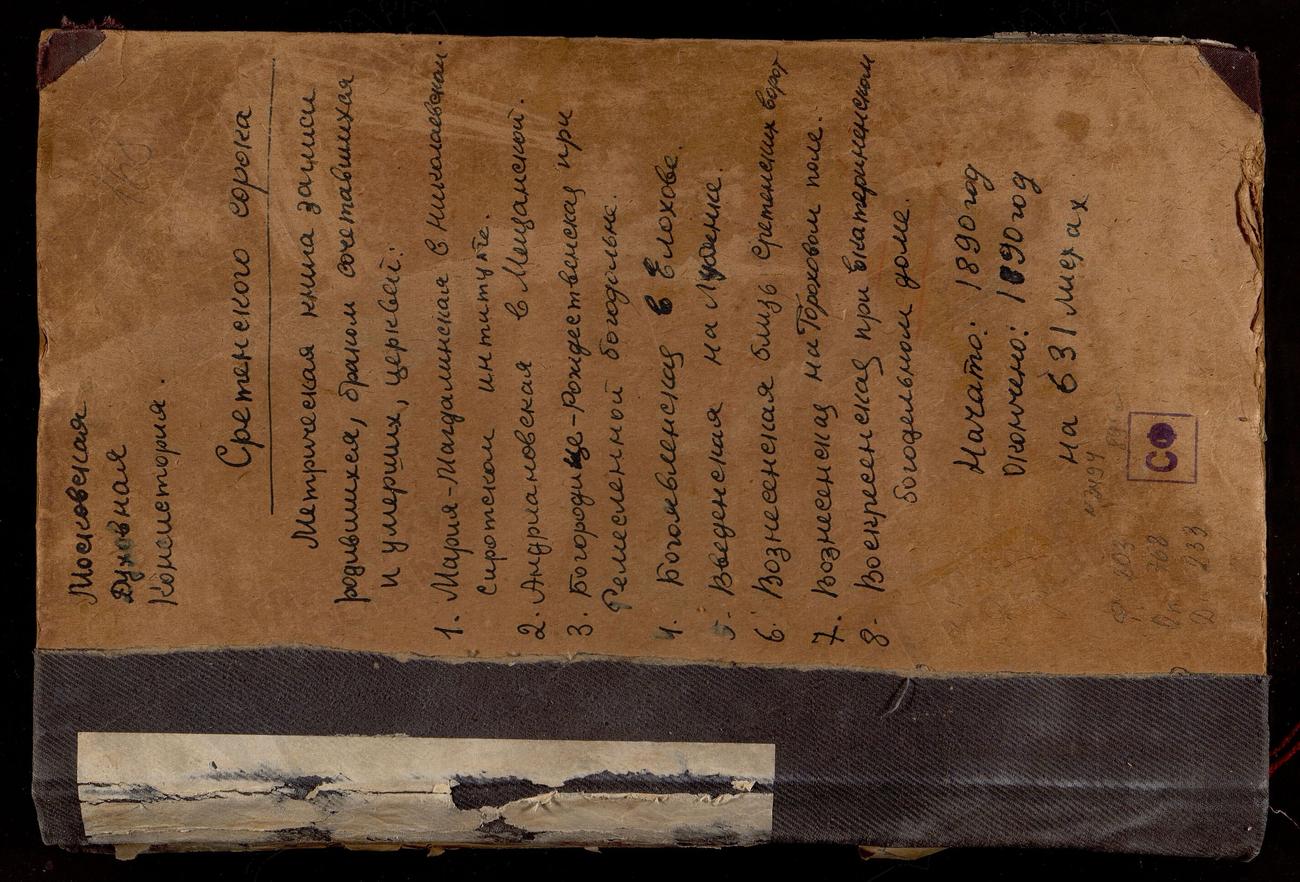 Московская
Духовная
Консистория.
Сретенского сорока
Метрическая книга записи
родившихся, браком сочетавшихся
и умерших, церквей:
1. Мария-Магдалинская в Николаевском
сиротском интитуте.
2. Андриановская в Мещанской.
3. Богородице-Рождественская при
Ремесленной богодельне.
4. Богоявленская в Елохове.
5. Введенская на Лубенке.
6. Вознесенская близь Сретенских ворот
7. Вознесенская на Гороховом поле.
8. Воскресенская при Екатерининском
богодельном доме.
Начато: 1890 год
Окончено: 1890 год
на 631 листах
СФ
Ф. 203
768
Оп.
Д. 233